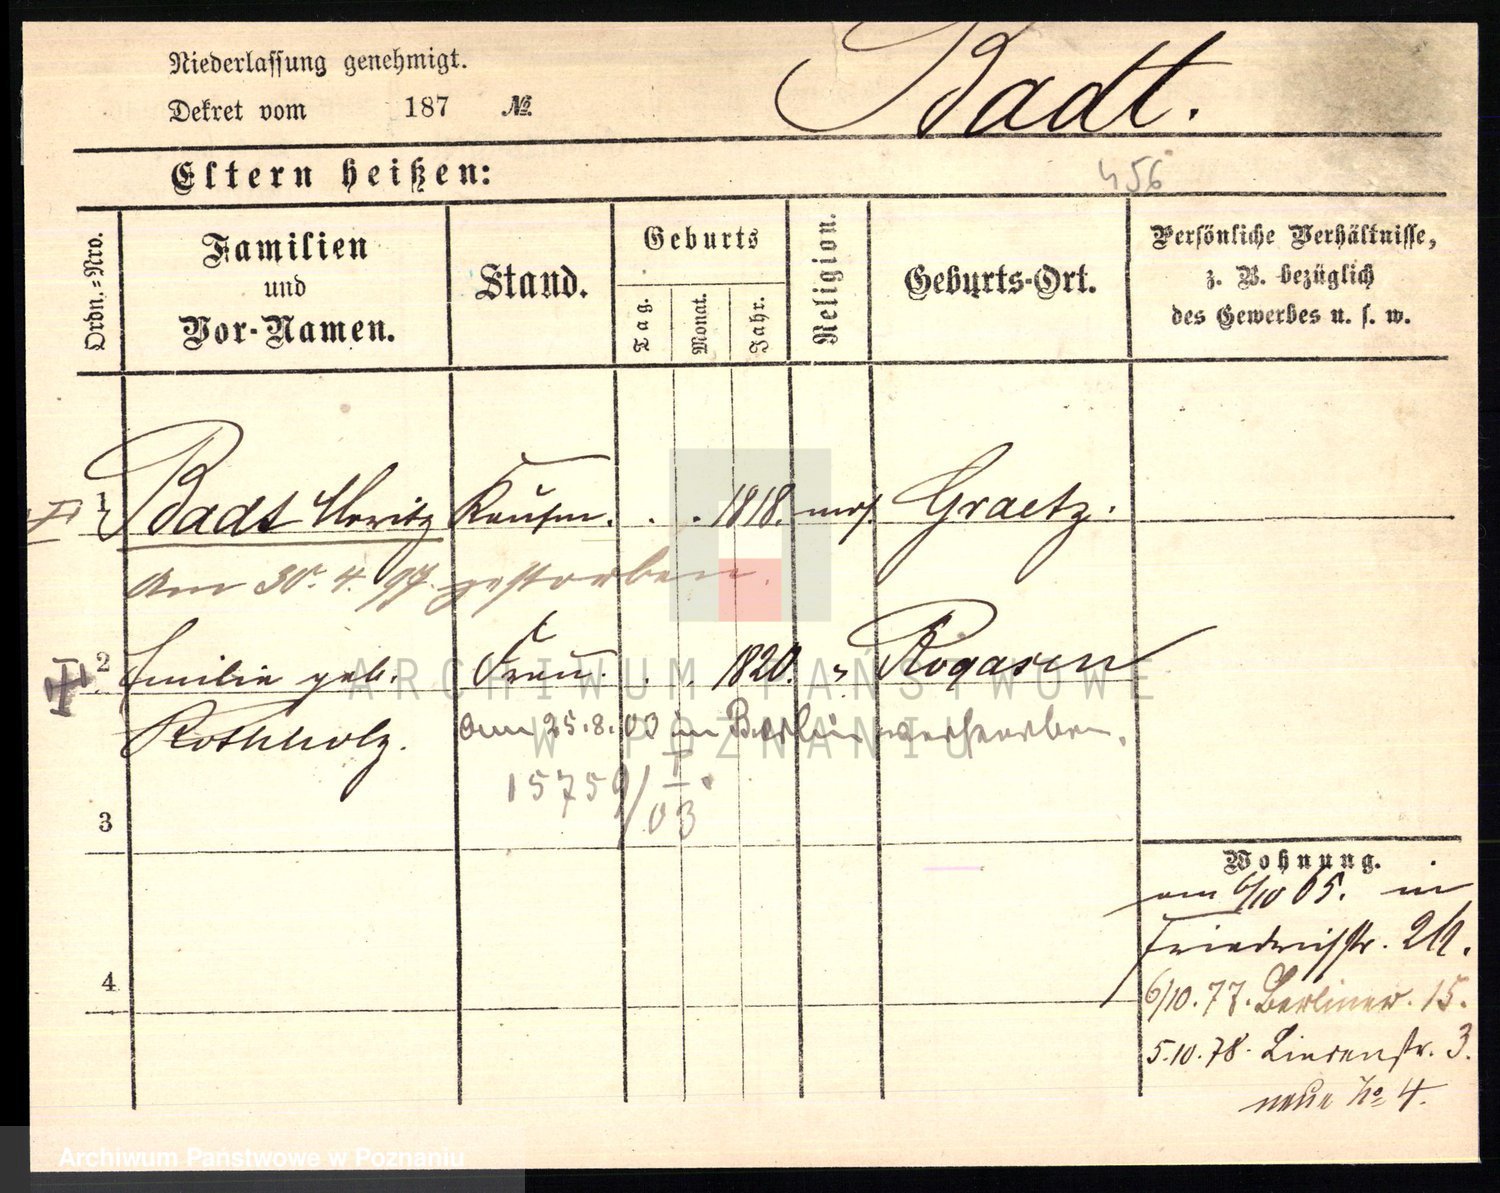 Niederlassung genehmigt.
Dekret vom 187 №
Badt.
Eltern heißen:
456
Ordn.-Nro.
Familien
und
Vor-Namen.
Stand.
Geburts
Tag.
Monat.
Jahr.
Religion.
Geburts-Ort.
Persönliche Verhältnisse,
z. B. bezüglich
des Gewerbes u. s. w.
1 Badt Moritz Kaufm. . . 1818. mos. Graetz.
am 30. 4. 97. gestorben.
2 Emilie geb. Frau. . . 1820. " Rogasen
Rothholz. am 25.8.03 in Berlin verstorben.
15759/I 03
3
4
Wohnung.
am 6/10 65. in
Friedrichstr. 21.
6/10.77. Berliner. 15.
5.10.78. Lindenstr. 3.
neue No 4.
ARCHIWUM PAŃSTWOWE
W POZNANIU
Archiwum Państwowe w Poznaniu